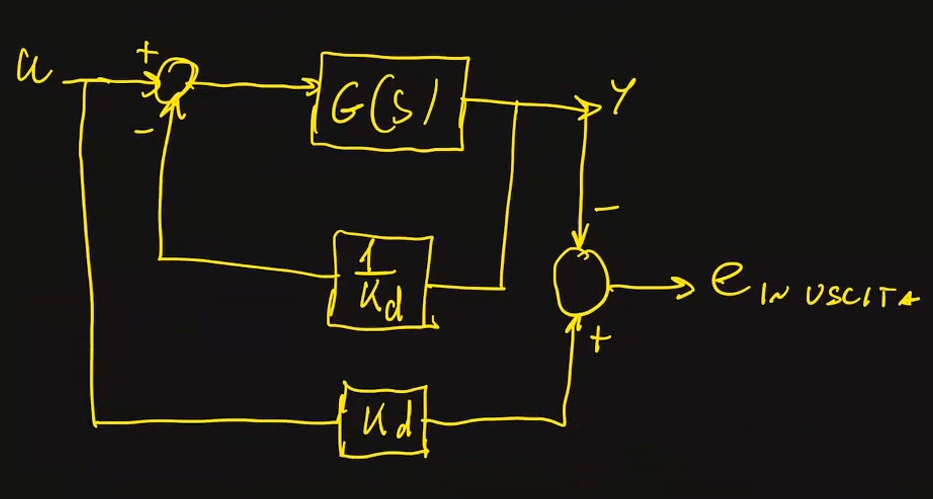 u + G(s) y
-
-
1
Kd
e IN USCITA
+
Kd